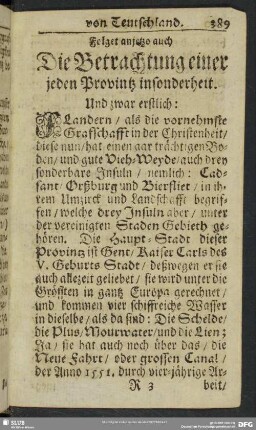 von Teutschland. 389
Folget anjetzo auch
Die Betrachtung einer
jeden Provintz insonderheit.
Und zwar erstlich:
FLandern / als die vornehmste
Graffschafft in der Christenheit /
diese nun / hat einen gar trächtigen Bo-
den / und gute Vieh-Weyde / auch drey
sonderbare Insuln / nemlich: Cad-
sant / Orßburg und Biersliet / in ih-
rem Umzirck und Landschafft begrif-
fen / welche drey Insuln aber / unter
der vereinigten Staden Gebieth ge-
hören. Die Haupt-Stadt dieser
Provintz ist Gent / Kaiser Carls des
V. Geburts Stadt / deßwegen er sie
auch allezeit geliebet / sie wird unter die
Grösten in gantz Europa gerechnet /
und kommen vier schiffreiche Wasser
in dieselbe / als da sind: Die Schelde /
die Plus / Mourwater / und die Lien;
Ja / sie hat auch noch über das / die
Neue Fahrt / oder grossen Canal /
der Anno 1551. durch vier-jährige Ar-
R 3 beit /
SLUB
DFG